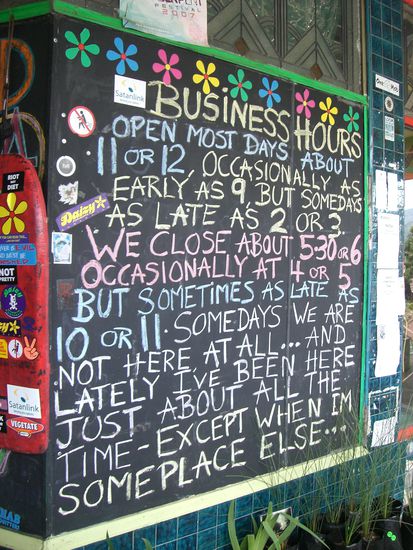 FESTIVAL
2007
Satanlink
BUSINESS HOURS
OPEN MOST DAYS ABOUT
11 OR 12. OCCASIONALLY AS
EARLY AS 9, BUT SOMEDAYS
AS LATE AS 2 OR 3.
WE CLOSE ABOUT 530 OR 6
OCCASIONALLY AT 4 OR 5
BUT SOMETIMES AS LATE AS
10 OR 11. SOMEDAYS WE ARE
NOT HERE AT ALL... AND
LATELY I'VE BEEN HERE
JUST ABOUT ALL THE
TIME - EXCEPT WHEN I'M
SOMEPLACE ELSE...
Daizy
RIOT
NOT
DIET
NOT PRETTY
Satanlink
VEGETATE